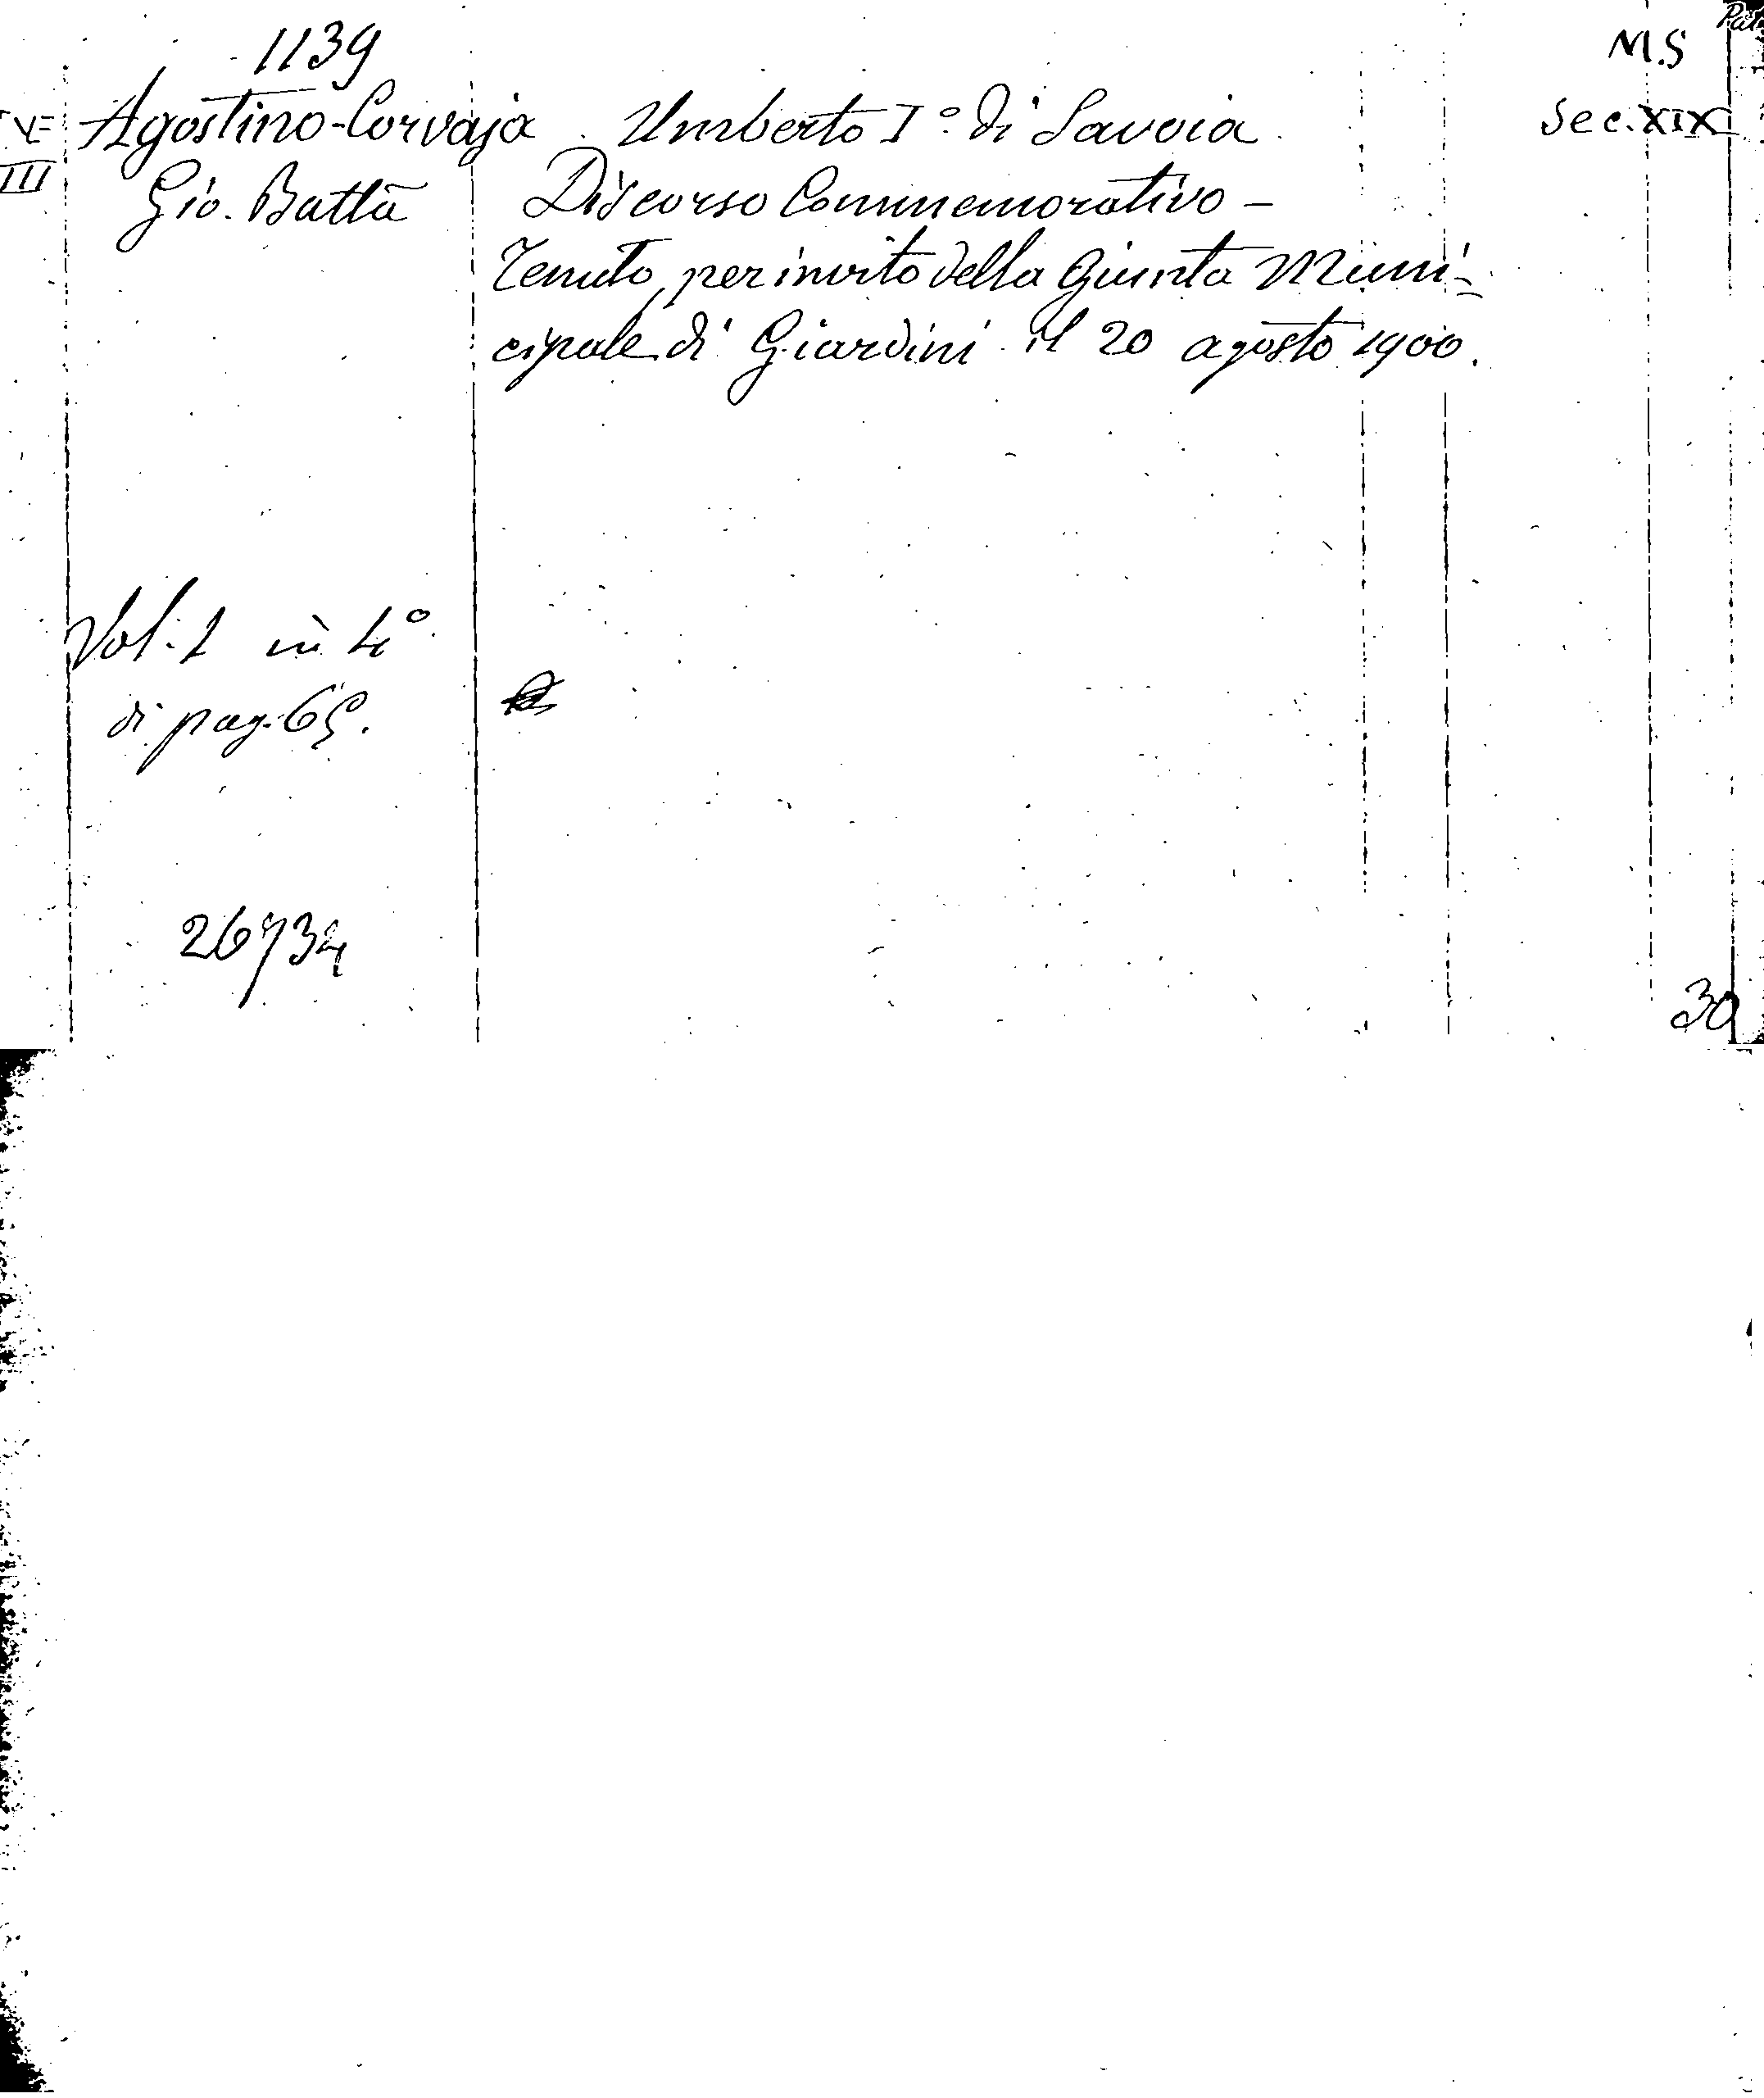 1139
M.S
Agostino-Corvaja Umberto I° di Savoia Sec. XIX
III Gio. Batta Discorso Commemorativo -
Tenuto, per invito della Giunta Muni-
cipale di Giardini il 20 agosto 1900.
Vol. 1 in 4°
di pag. 65.
26734
30